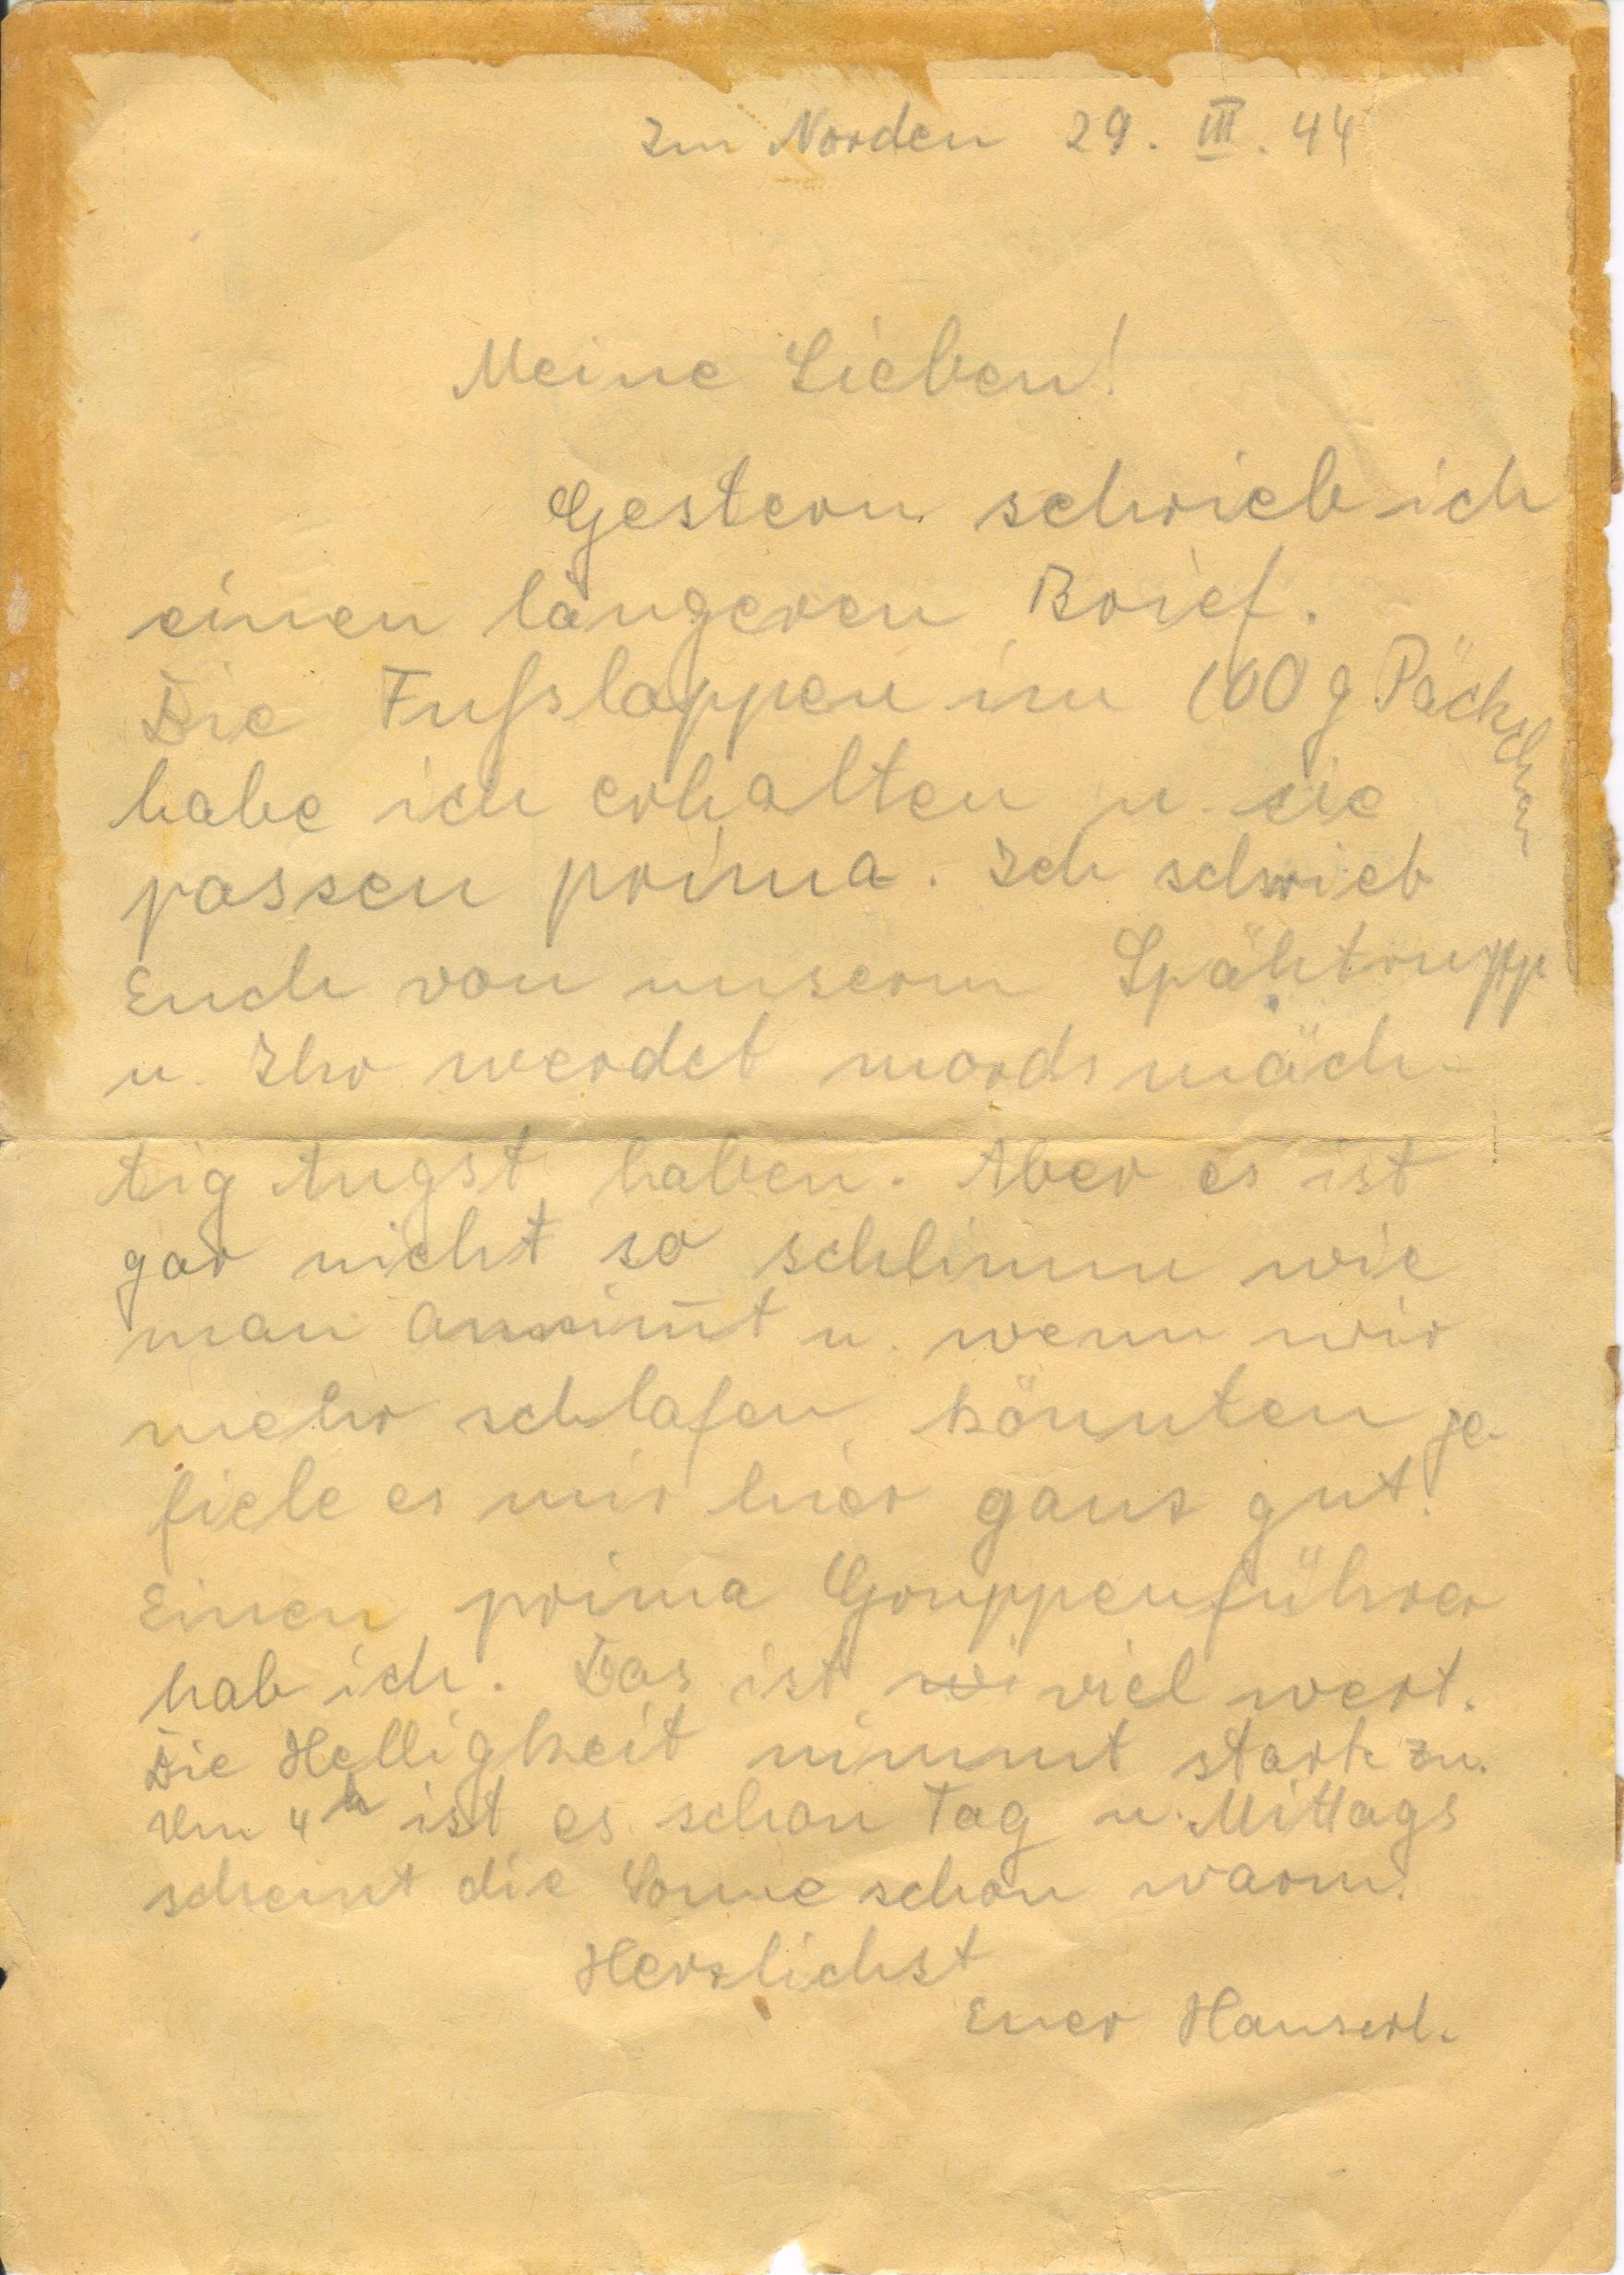 Im Norden 29. III. 44
Meine Lieben!
Gestern schrieb ich
einen längeren Brief.
Die Fußlappen im 100 g Päckchen
habe ich erhalten u. sie
passen prima. Ich schrieb
Euch von unserm Spähtrupp
u. Ihr werdet mordsmäch-
tig Angst haben. Aber es ist
gar nicht so schlimm wie
man annim̅t u. wenn wir
mehr schlafen könnten ge-
fiele es mir hier ganz gut!
Einen prima Gruppenführer
hab ich. Das ist viel wert.
Die Helligkeit nimmt stark zu.
Um 4 h ist es schon Tag u. Mittags
scheint die Sonne schon warm.
Herzlichst
Euer Hanserl.